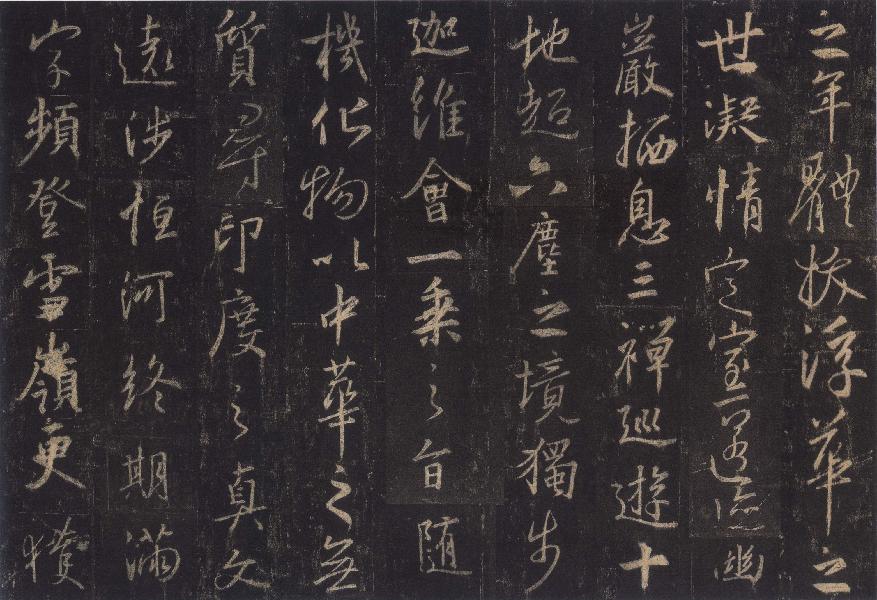 之年體拔浮華之
世凝情定室匿迹幽
巖栖息三禪巡遊十
地超六塵之境獨步
迦維會一乘之旨随
機化物以中華之無
質尋印度之真文
遠涉恒河終期滿
字頻登雪嶺更獲